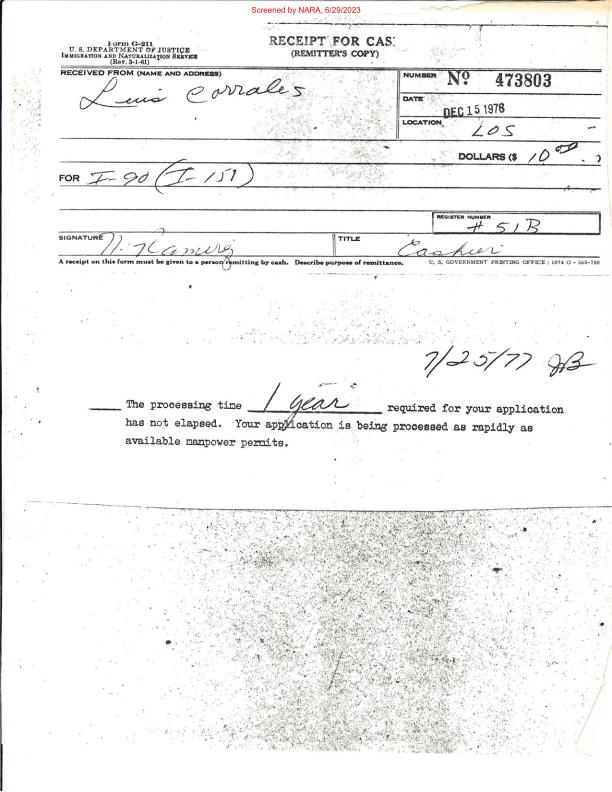 Screened by NARA, 6/29/2023
Form G-211
U. S. DEPARTMENT OF JUSTICE
IMMIGRATION AND NATURALIZATION SERVICE
(Rev. 3-1-61)
RECEIPT FOR CAS
(REMITTER'S COPY)
RECEIVED FROM (NAME AND ADDRESS)
Luis Corrales
NUMBER No 473803
DATE
DEC 15 1976
LOCATION
LOS
DOLLARS ($ 10 00 . )
FOR I-90 (I-151)
REGISTER NUMBER
# 51B
SIGNATURE N. Ramirez
TITLE Cashier
A receipt on this form must be given to a person remitting by cash. Describe purpose of remittance.
U. S. GOVERNMENT PRINTING OFFICE : 1974 O - 560-788
7/25/77 JB
The processing time 1 year required for your application
has not elapsed. Your application is being processed as rapidly as
available manpower permits.